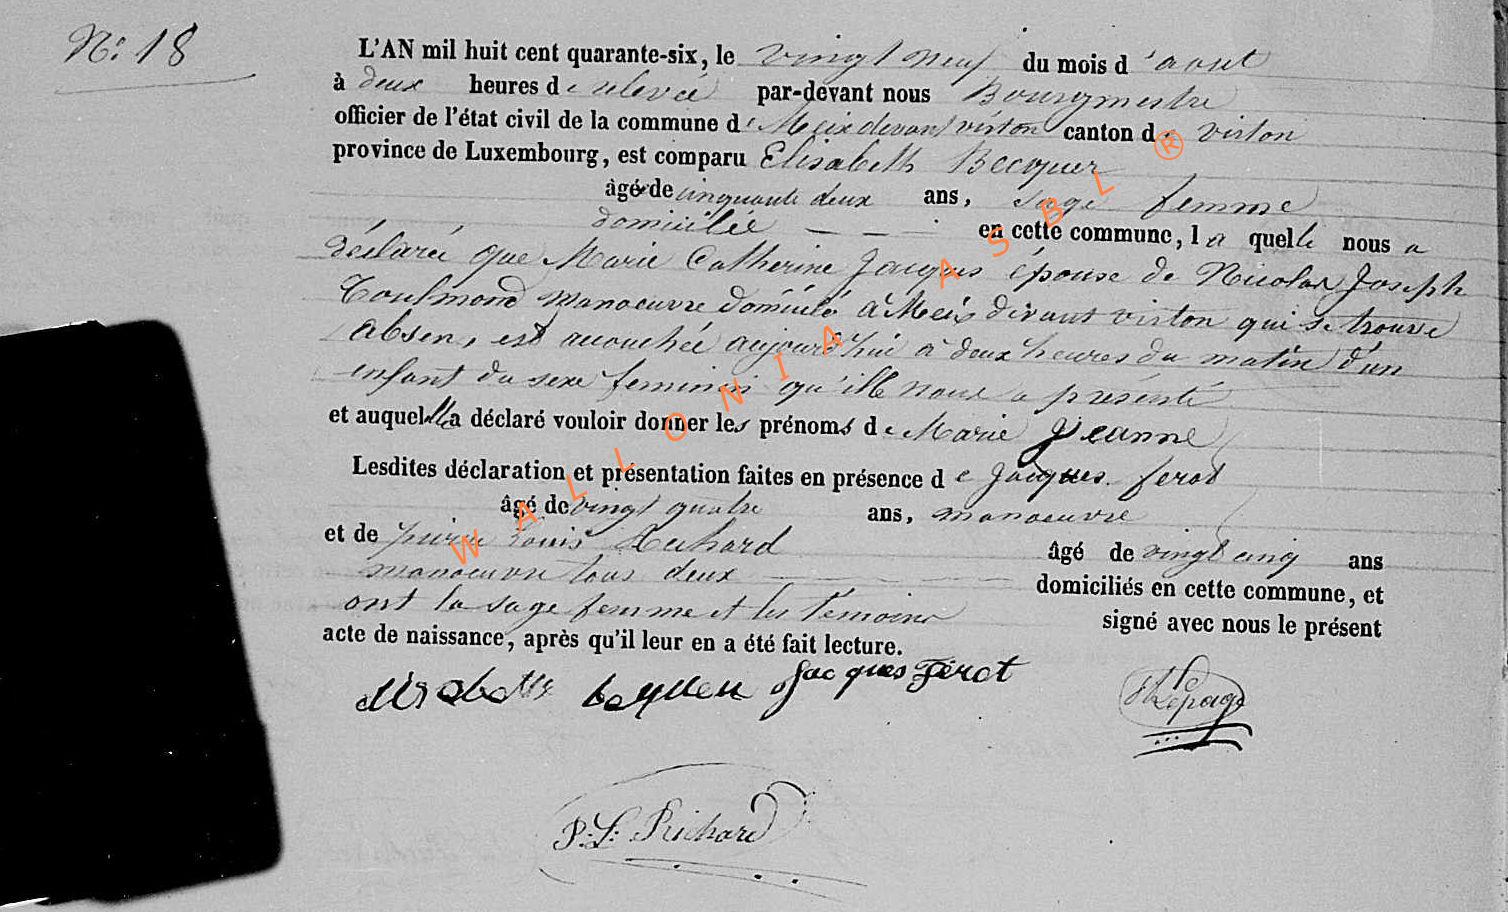 N: 18
L'AN mil huit cent quarante-six, le vingt neuf du mois d'aout
à deux heures de relevée par-devant nous Bourgmestre
officier de l'état civil de la commune de Meix devant virton canton de virton
province de Luxembourg, est comparu Elisabeth Becquer
âgée de cinquante deux ans, sage femme
domiciliée — — - en cette commune, la quelle nous a
déclaré que Marie Catherine Jacques épouse de Nicolas Joseph
manoeuvre domicilé à Meix divant virton qui se trouve
absen, est accouchée aujourd'hui à deux heures du matin d'un
enfant du sexe feminin qu'ille nous a présenté
et auquel lla déclaré vouloir donner les prénoms de Marie Jeanne
Lesdites déclaration et présentation faites en présence de Jacques ferot
âgé de vingt quatre ans, manoeuvre
et de pierre Louis Richard âgé de vingt cinq ans
manoeuvre tous deux domiciliés en cette commune, et
ont la sage femme et les témoins signé avec nous le présent
acte de naissance, après qu'il leur en a été fait lecture.
Jacques Ferot
Lepage
P: L: Richard
WALLONIA ASBL ®